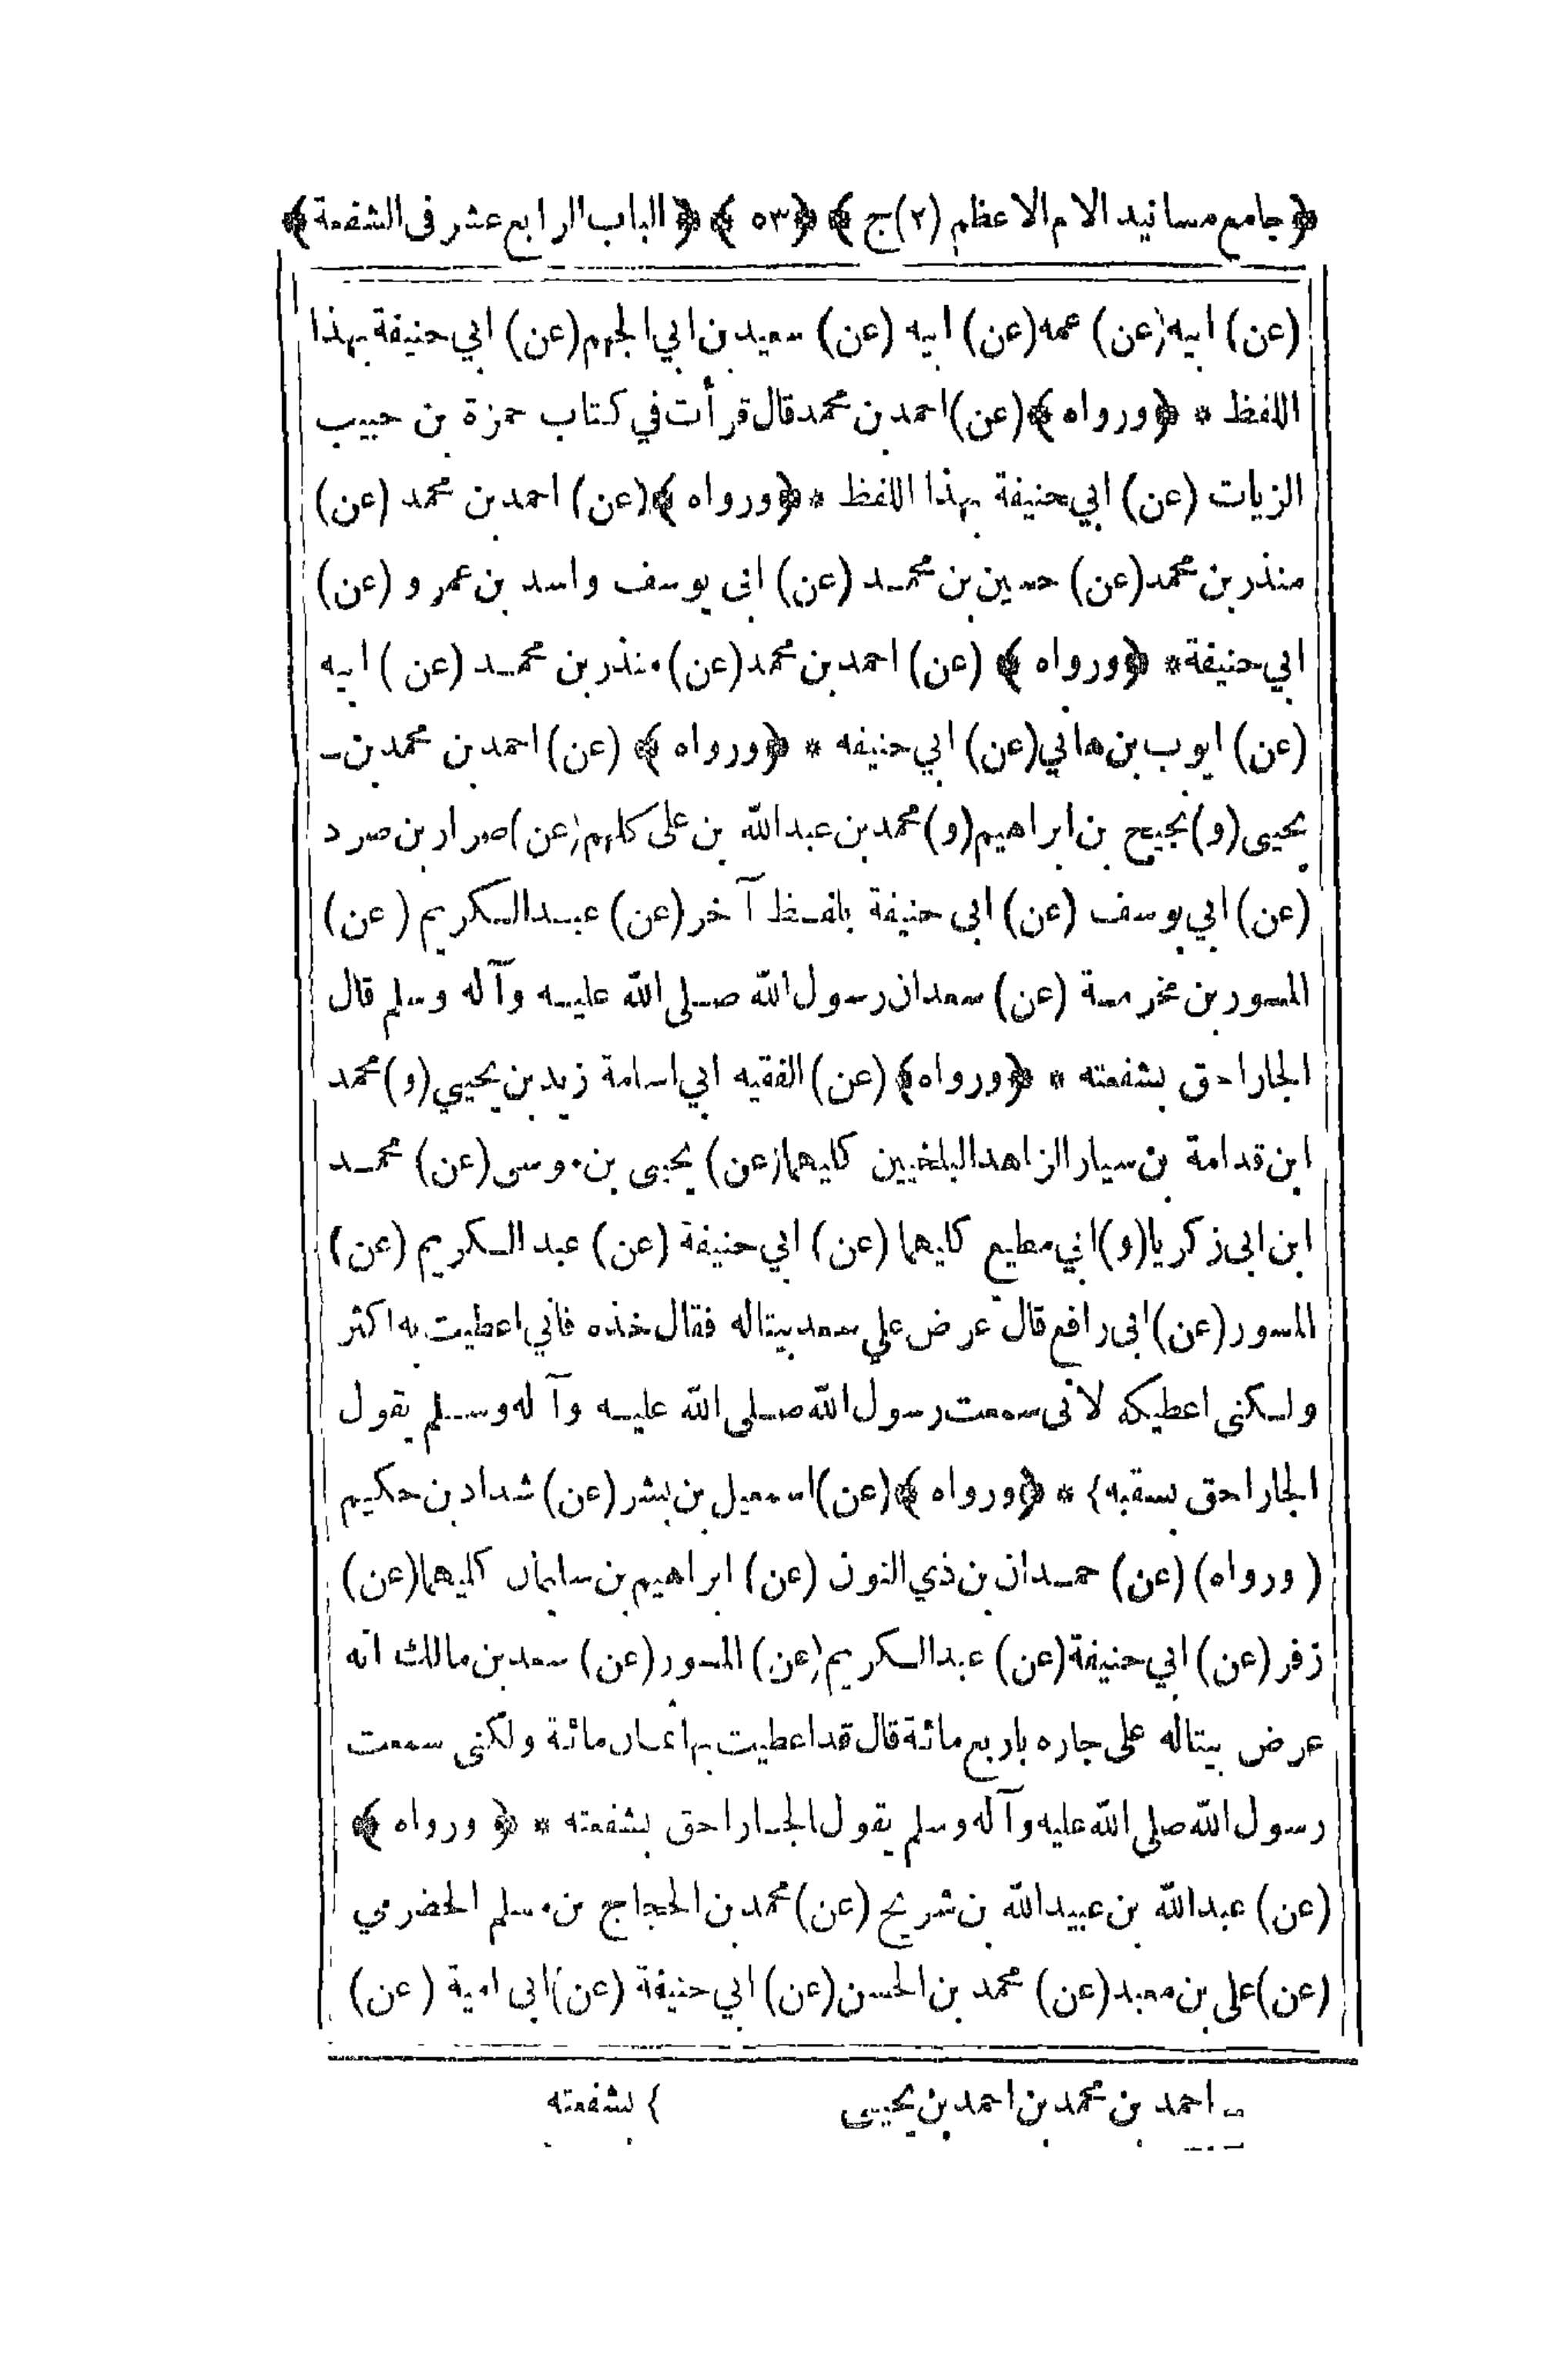 ﴿جامع مسانيد الامام الاعظم (٢) ج﴾ ﴿٥٣﴾ ﴿الباب الرابع عشر فى الشفعة﴾
(عن) ابيه (عن) عمه (عن) ابيه (عن) سعيد بن ابي الجهم (عن) ابي حنيفة بهذا
اللفظ * ﴿ورواه﴾ (عن) احمد بن محمد قال قرأت في كتاب حمزة بن حبيب
الزيات (عن) ابي حنيفة بهذا اللفظ * ﴿ورواه﴾ (عن) احمد بن محمد (عن)
منذر بن محمد (عن) حسين بن محمد (عن) ابى يوسف واسد بن عمرو (عن)
ابي حنيفة * ﴿ورواه﴾ (عن) احمد بن محمد (عن) منذر بن محمد (عن) ابيه
(عن) ايوب بن هاني (عن) ابي حنيفه * ﴿ورواه﴾ (عن) احمد بن محمد بن ـ
يحيى (و) نجيح بن ابراهيم (و) محمد بن عبدالله بن على كلهم (عن) ضرار بن صرد
(عن) ابي يوسف (عن) ابى حنيفة بلفظ آخر (عن) عبدالكريم (عن)
المسور بن مخرمة (عن) سعد ان رسول الله صلى الله عليه وآله وسلم قال
الجار احق بشفعته * ﴿ورواه﴾ (عن) الفقيه ابي اسامة زيد بن يحيي (و) محمد
ابن قدامة بن سيار الزاهد البلخيين كليهما (عن) يحيى بن موسى (عن) محمد
ابن ابى زكريا (و) ابي مطيع كليهما (عن) ابي حنيفة (عن) عبدالكريم (عن)
المسور (عن) ابى رافع قال عرض علي سعد بيتاله فقال خذه فاني اعطيت به اكثر
ولكنى اعطيكه لانى سمعت رسول الله صلى الله عليه وآله وسلم يقول
الجار احق بسقبه} * ﴿ورواه﴾ (عن) اسمعيل بن بشر (عن) شداد بن حكيم
(ورواه) (عن) حمدان بن ذي النون (عن) ابراهيم بن سليمان كليهما (عن)
زفر (عن) ابي حنيفة (عن) عبدالكريم (عن) المسور (عن) سعد بن مالك انه
عرض بيتاله على جاره باربع مائة قال قد اعطيت بها ثمان مائة ولكنى سمعت
رسول الله صلى الله عليه وآله وسلم يقول الجار احق بشفعته * ﴿ورواه﴾
(عن) عبدالله بن عبيدالله بن شريح (عن) محمد بن الحجاج بن مسلم الحضرمي
(عن) على بن معبد (عن) محمد بن الحسن (عن) ابي حنيفة (عن) ابى امية (عن)
ـ احمد بن محمد بن احمد بن يحيى } بشفعته